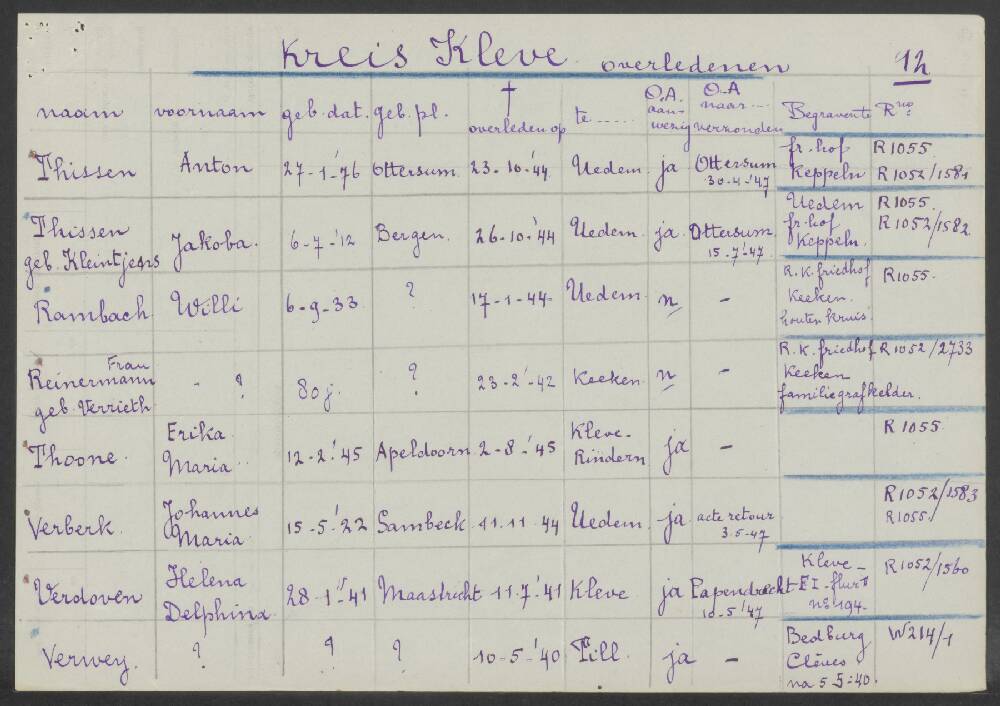 Kreis Kleve overledenen 12
naam voornaam geb. dat. geb. pl. † overleden op te ...... O.A. aan- wezig O.A naar ... verzonden Begraven te R no.
Thissen Anton 27-1-'76 Ottersum. 23-10-'44 Uedem. ja Ottersum 30-4-'47 fr. hof Keppeln R 1055. R 1052/1581
Thissen geb. Kleintjens Jakoba. 6-7-'12 Bergen. 26-10-'44 Uedem. ja. Ottersum. 15-7-'47. Uedem fr. hof Keppeln. R 1055. R 1052/1582
Rambach Willi 6-9-33 ? 17-1-44 Uedem. n - R.K. friedhof Keeken. houten kruis. R 1055.
Frau Reinermann geb. Verrieth - ? 80 j. ? 23-2-'42 Keeken. n - R.K. friedhof Keeken familiegrafkelder. R 1052/2733
Thoone. Erika. Maria. 12-2-'45 Apeldoorn 2-8-'45 Kleve- Rindern ja - R 1055.
Verberk. Johannes Maria. 15-5-'22 Sambeek 11.11.44 Uedem. ja. acte retour 3.5-47 R 1052/1583 R 1055.
Verdoven Helena Delphina 28-1-'41 Maastricht 11-7-'41 Kleve ja Papendrecht 10-5-'47 Kleve- E I - flur II no 194. R 1052/1560
Verwey. ? ? ? 10-5-'40 Till. ja - Bedburg Clèves na 5-5-40. W214/1